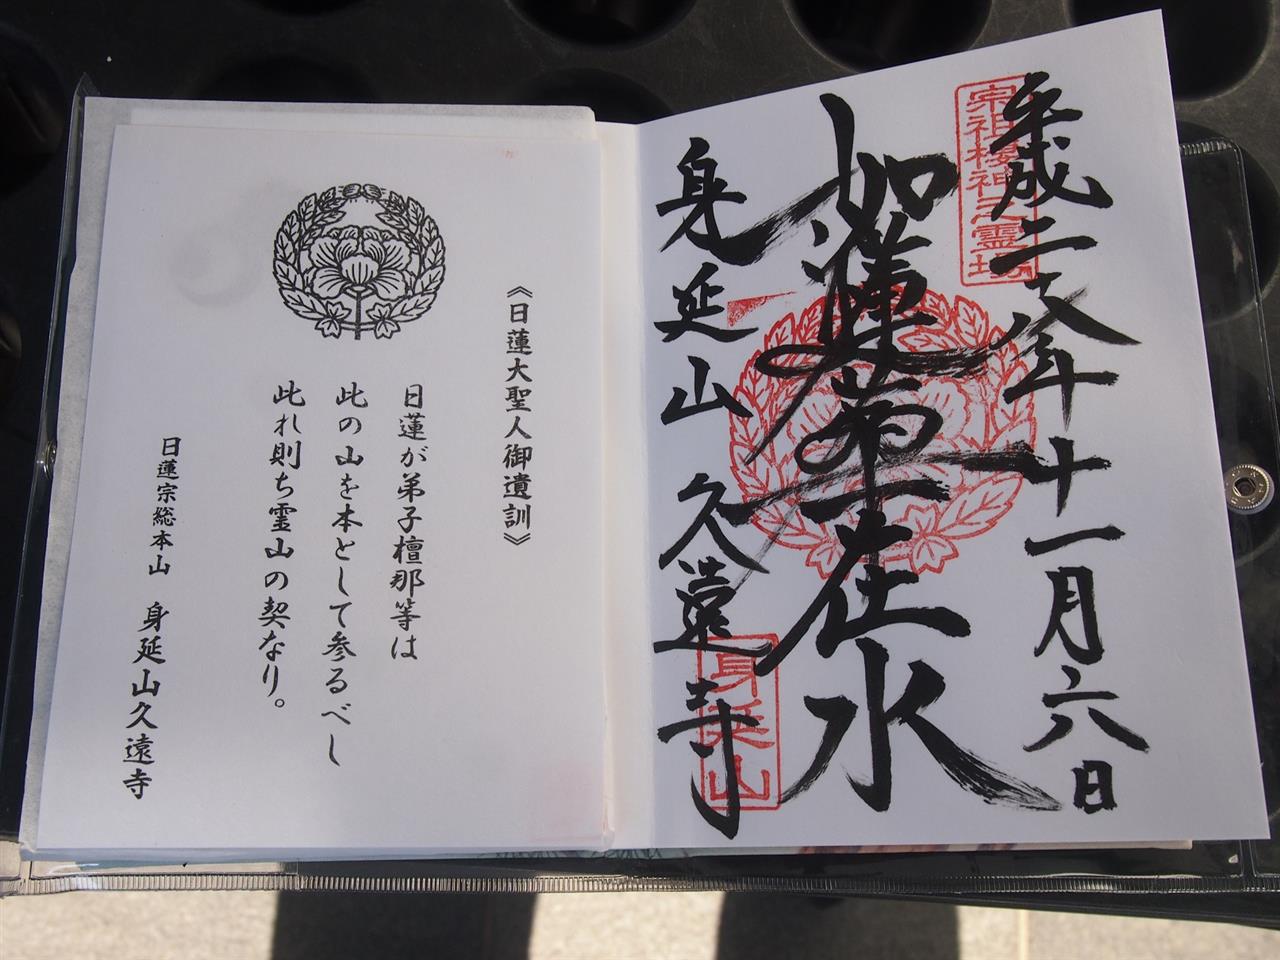 平成二十八年十一月六日
宗祖棲神之霊場
如蓮華在水
身延山 久遠寺
身延山
《日蓮大聖人御遺訓》
日蓮が弟子檀那等は
此の山を本として参るべし
此れ則ち霊山の契なり。
日蓮宗総本山 身延山久遠寺